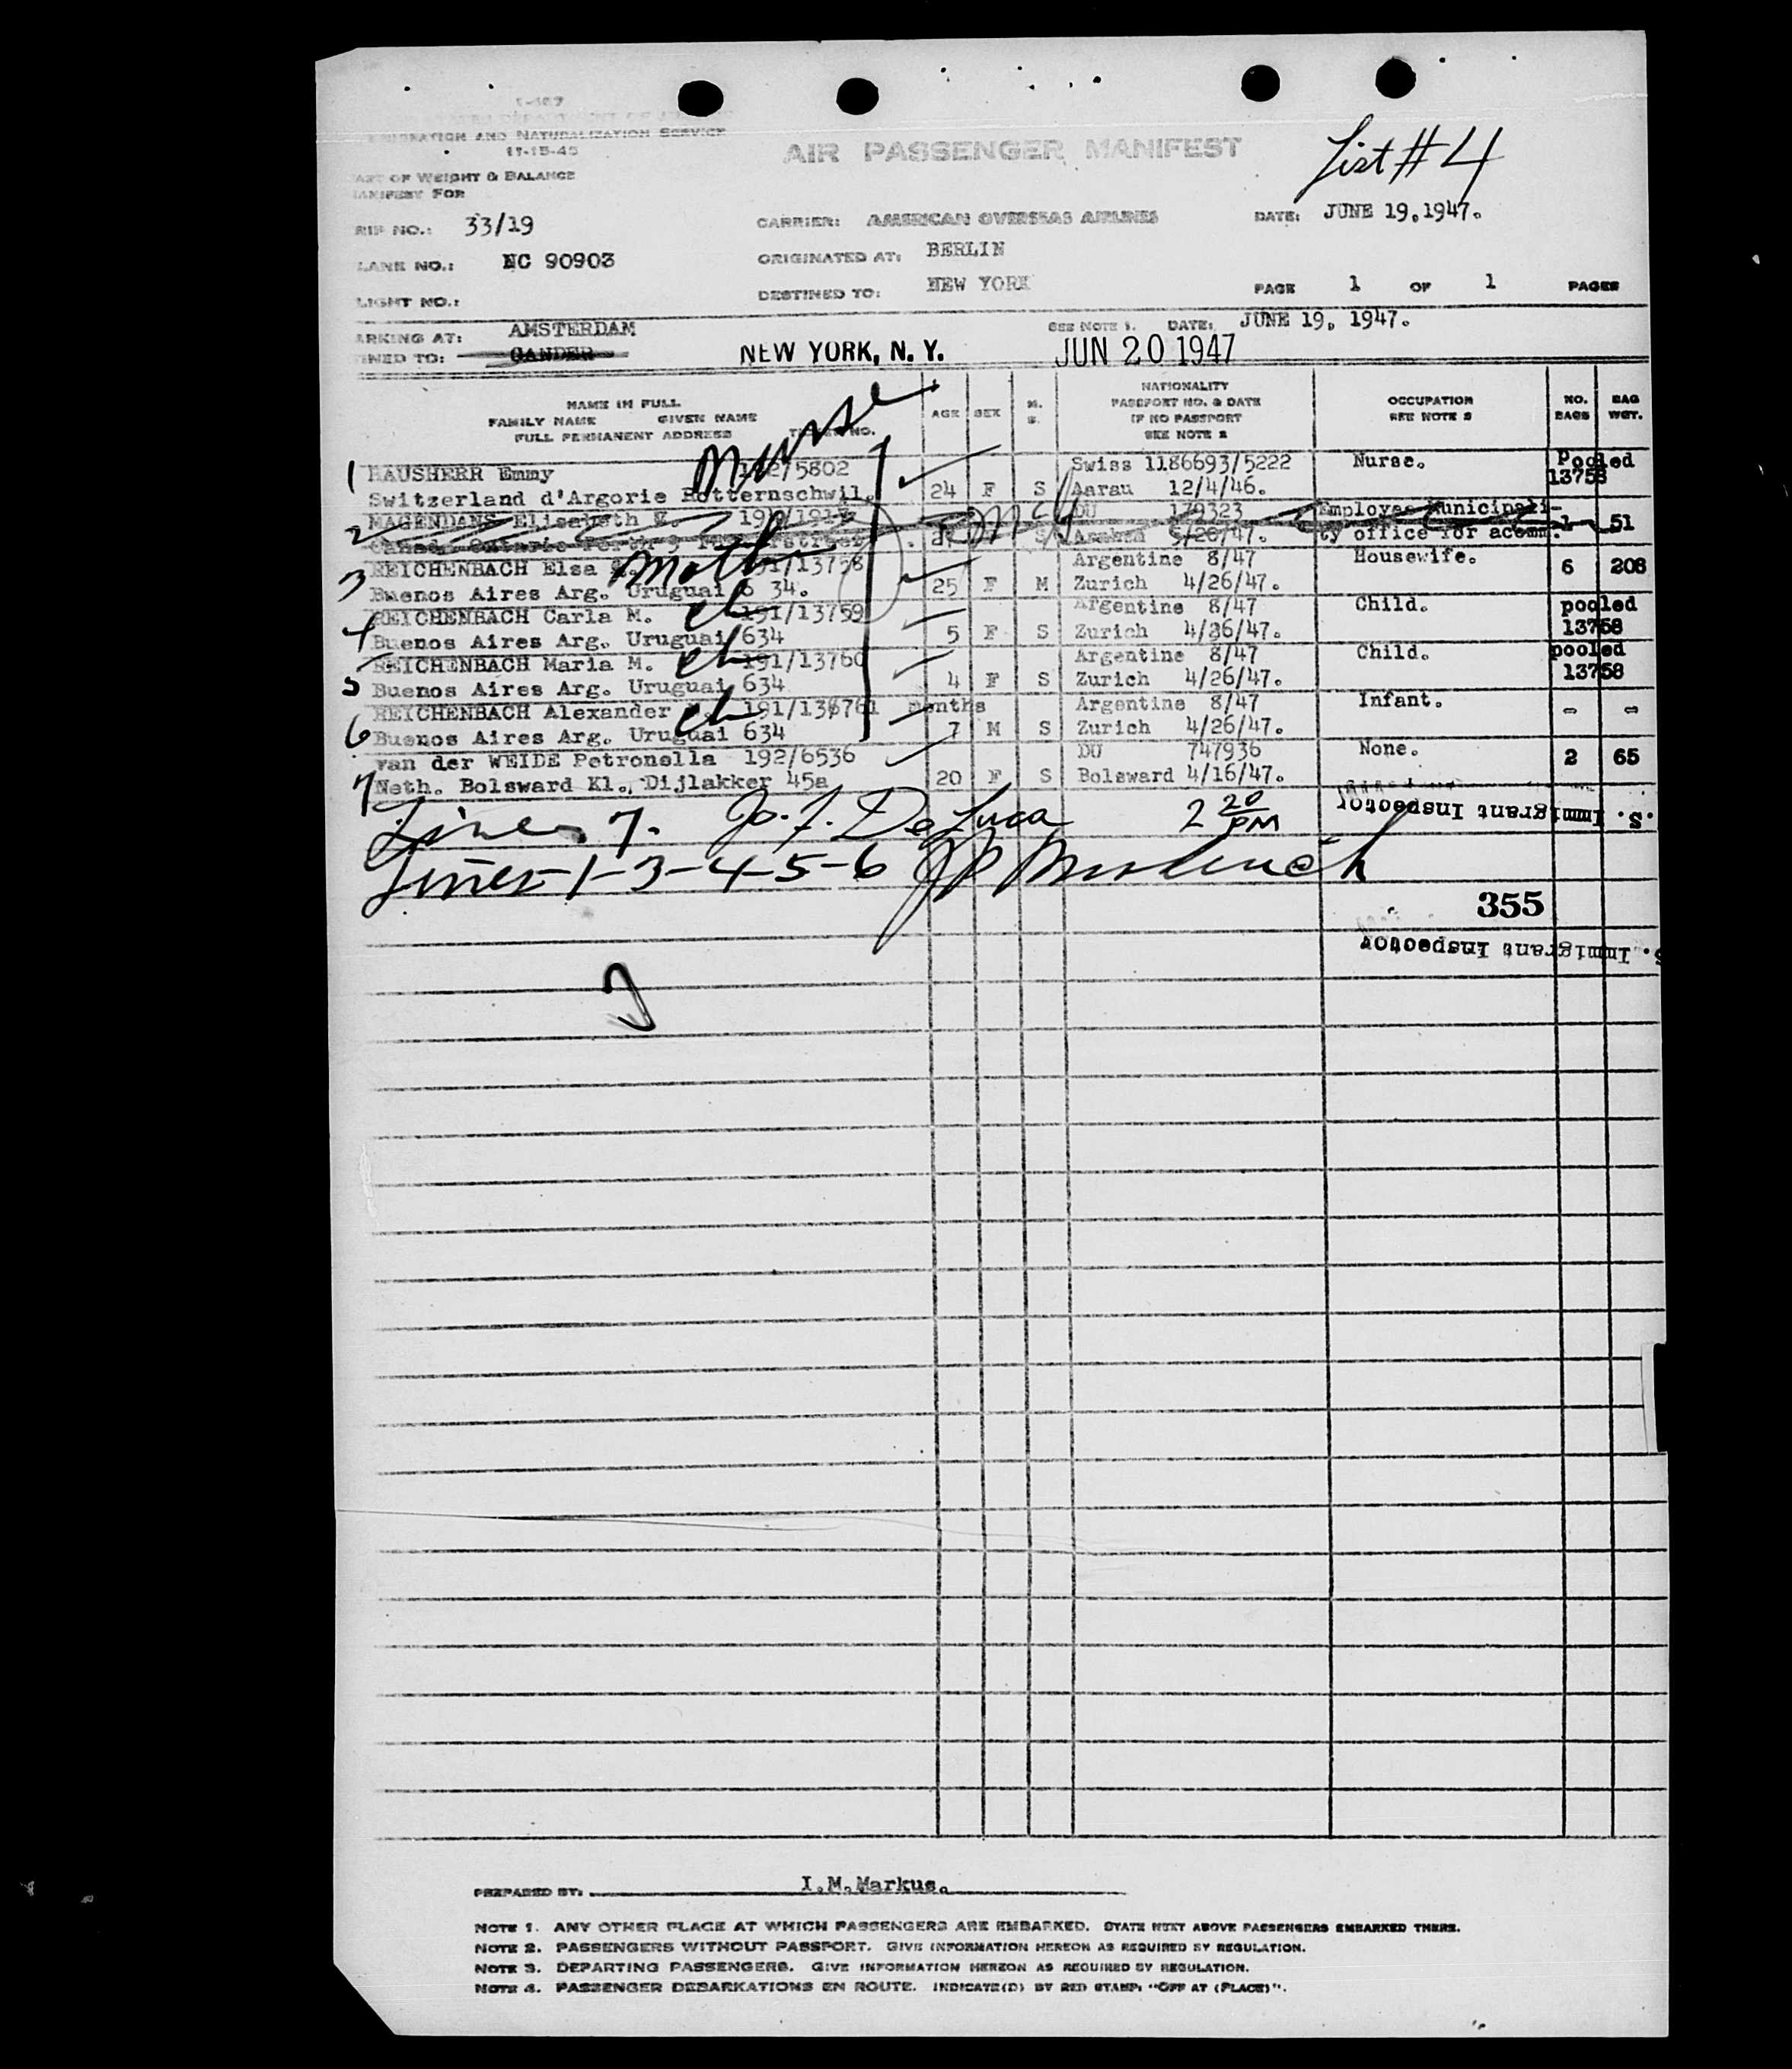 I-467
IMMIGRATION AND NATURALIZATION SERVICE
11-15-45
AIR PASSENGER MANIFEST
List # 4
PART OF WEIGHT & BALANCE
MANIFEST FOR
RIP NO.: 33/19 CARRIER: AMERICAN OVERSEAS AIRLINES DATE: JUNE 19,1947.
LANE NO.: NC 90903 ORIGINATED AT: BERLIN
LIGHT NO.: DESTINED TO: NEW YORK PAGE 1 OF 1 PAGES
ARKING AT: AMSTERDAM SEE NOTE 1. DATE: JUNE 19, 1947.
INED TO: GANDER NEW YORK, N. Y. JUN 20 1947
NAME IN FULL
FAMILY NAME GIVEN NAME
FULL PERMANENT ADDRESS NO. AGE SEX M. S. NATIONALITY PASSPORT NO. & DATE IF NO PASSPORT SEE NOTE 2 OCCUPATION SEE NOTE 3 NO. BAGS BAG WGT.
Nurse
1 HAUSHERR Emmy /5802 Swiss 1186693/5222 Nurse. Pooled
Switzerland d'Argorie Rotternschwil. 24 F S Aarau 12/4/46. 13758
2 MAGENDANS Elisabeth DU 179323 Employee Municipali- 1 51
Canada Ontario Perth /47. ty office for acomm.
3 REICHENBACH Elsa Mother 191/13758 Argentine 8/47 Housewife. 6 208
Buenos Aires Arg. Uruguai 6 34. 25 F M Zurich 4/26/47.
4 REICHENBACH Carla M. ch 191/13759 Argentine 8/47 Child. pooled
Buenos Aires Arg. Uruguai 634 5 F S Zurich 4/26/47. 13758
5 REICHENBACH Maria M. ch 191/13760 Argentine 8/47 Child. pooled
Buenos Aires Arg. Uruguai 634 4 F S Zurich 4/26/47. 13758
6 REICHENBACH Alexander ch 191/136761 months Argentine 8/47 Infant. - -
Buenos Aires Arg. Uruguai 634 7 M S Zurich 4/26/47.
7 van der WEIDE Petronella 192/6536 DU 747936 None. 2 65
Neth. Bolsward Kl. Dijlakker 45a 20 F S Bolsward 4/16/47.
Line 7. Jo. F. DeLuca 2 20 PM .S. Immigrant Inspector
Lines-1-3-4-5-6
355
S. Immigrant Inspector
PREPARED BY: I.M.Markus.
NOTE 1. ANY OTHER PLACE AT WHICH PASSENGERS ARE EMBARKED. STATE NEXT ABOVE PASSENGERS EMBARKED THERE.
NOTE 2. PASSENGERS WITHOUT PASSPORT. GIVE INFORMATION HEREON AS REQUIRED BY REGULATION.
NOTE 3. DEPARTING PASSENGERS. GIVE INFORMATION HEREON AS REQUIRED BY REGULATION.
NOTE 4. PASSENGER DEBARKATIONS EN ROUTE. INDICATE(D) BY RED STAMP: "OFF AT (PLACE)".